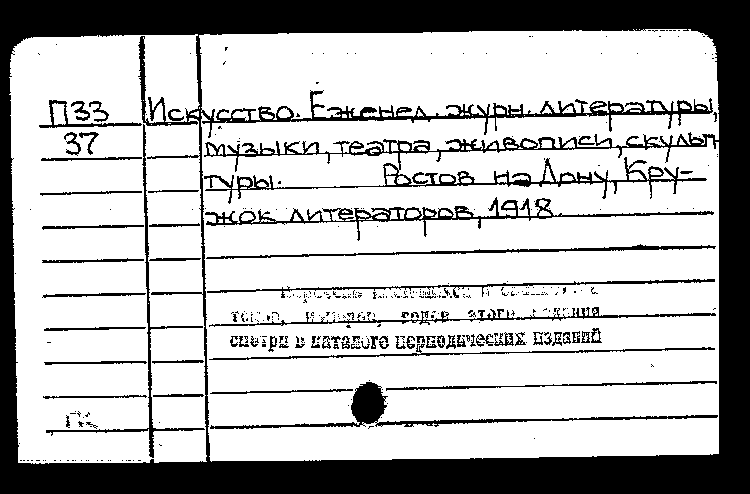 П33 Искусство. Еженед. журн. литературы,
37 музыки, театра, живописи, скульп
туры. Ростов на Дону, Кру-
жок литераторов, 1918.
Перечень имеющихся в библиотеке
томов, номеров, годов этого издания
смотри в каталоге периодических изданий
ГК